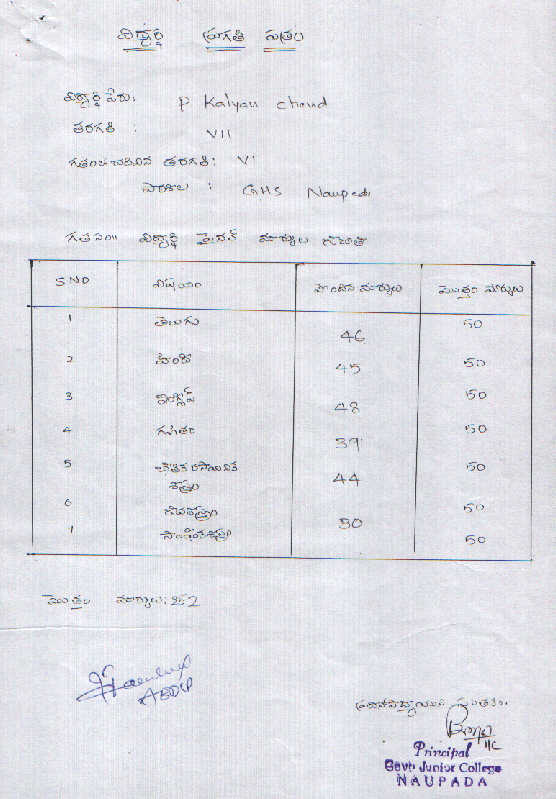 విద్యార్థి ప్రగతి పత్రం
విద్యార్థి పేరు: P Kalyan Chand
తరగతి : VII
గతంలో చదివిన తరగతి: VI
పాఠశాల : GHS Naupada
గత సం॥ విద్యార్థి ఫైనల్ మార్కుల జాబితా
S NO విషయం పొందిన మార్కులు మొత్తం మార్కులు
1 తెలుగు 46 50
2 హిందీ 45 50
3 ఇంగ్లీష్ 48 50
4 గణితం 39 50
5 భౌతిక రసాయనిక శాస్త్రం 44 50
6 జీవశాస్త్రం 50
సాంఘికశాస్త్రం 30 50
మొత్తం మార్కులు: 252
ప్రధానోపాధ్యాయుని సంతకం.
Principal
Govt Junior College
NAUPADA